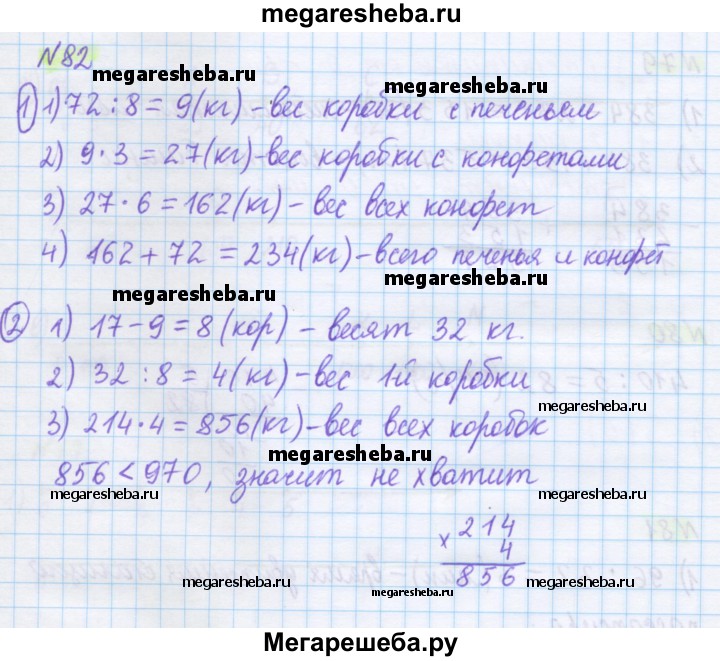 megaresheba.ru
№82
megaresheba.ru
① 1) 72 : 8 = 9(кг) – вес коробки с печеньем
2) 9 · 3 = 27(кг) – вес коробки с конфетами
3) 27 · 6 = 162(кг) – вес всех конфет
4) 162 + 72 = 234(кг) – всего печенья и конфет
megaresheba.ru
megaresheba.ru
② 1) 17 – 9 = 8 (кор) – весят 32 кг.
2) 32 : 8 = 4(кг) – вес 1й коробки
megaresheba.ru
3) 214 · 4 = 856(кг) – вес всех коробок
megaresheba.ru
856 < 970, значит не хватит
megaresheba.ru
megaresheba.ru
214
× 4
856
megaresheba.ru
megaresheba.ru
Мегарешеба.ру